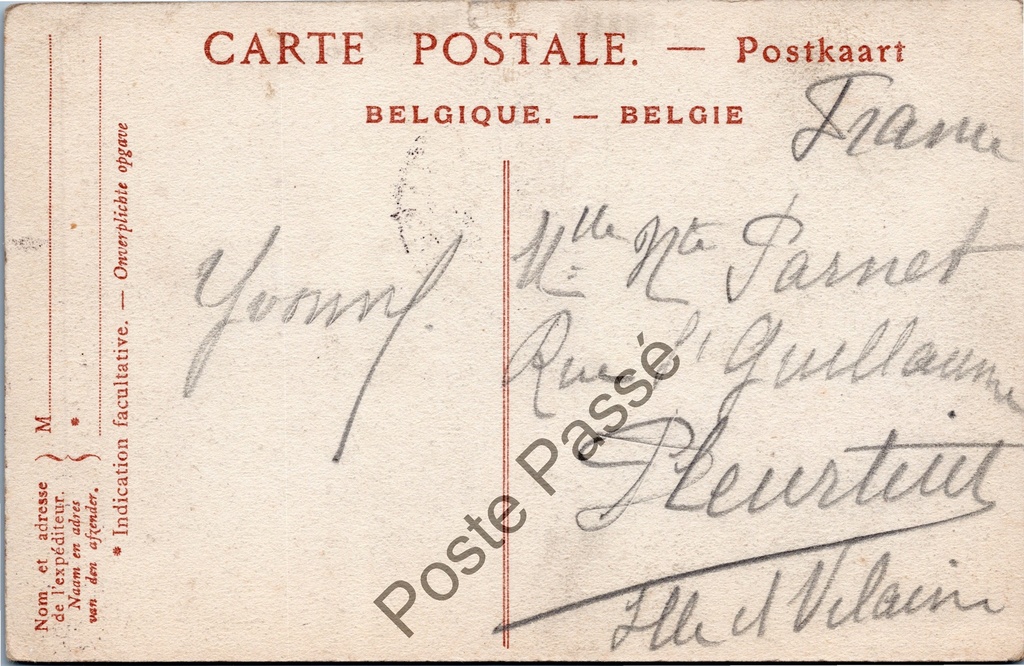 CARTE POSTALE. — Postkaart
BELGIQUE. — BELGIE
France
Mlle Nte Parnet
Rue St Guillaume
Pleurtuit
Ille et Vilaine
Yvonne
Nom et adresse
de l'expéditeur.
Naam en adres
van den afzender.
M
*
* Indication facultative. — Onverplichte opgave
Poste Passé